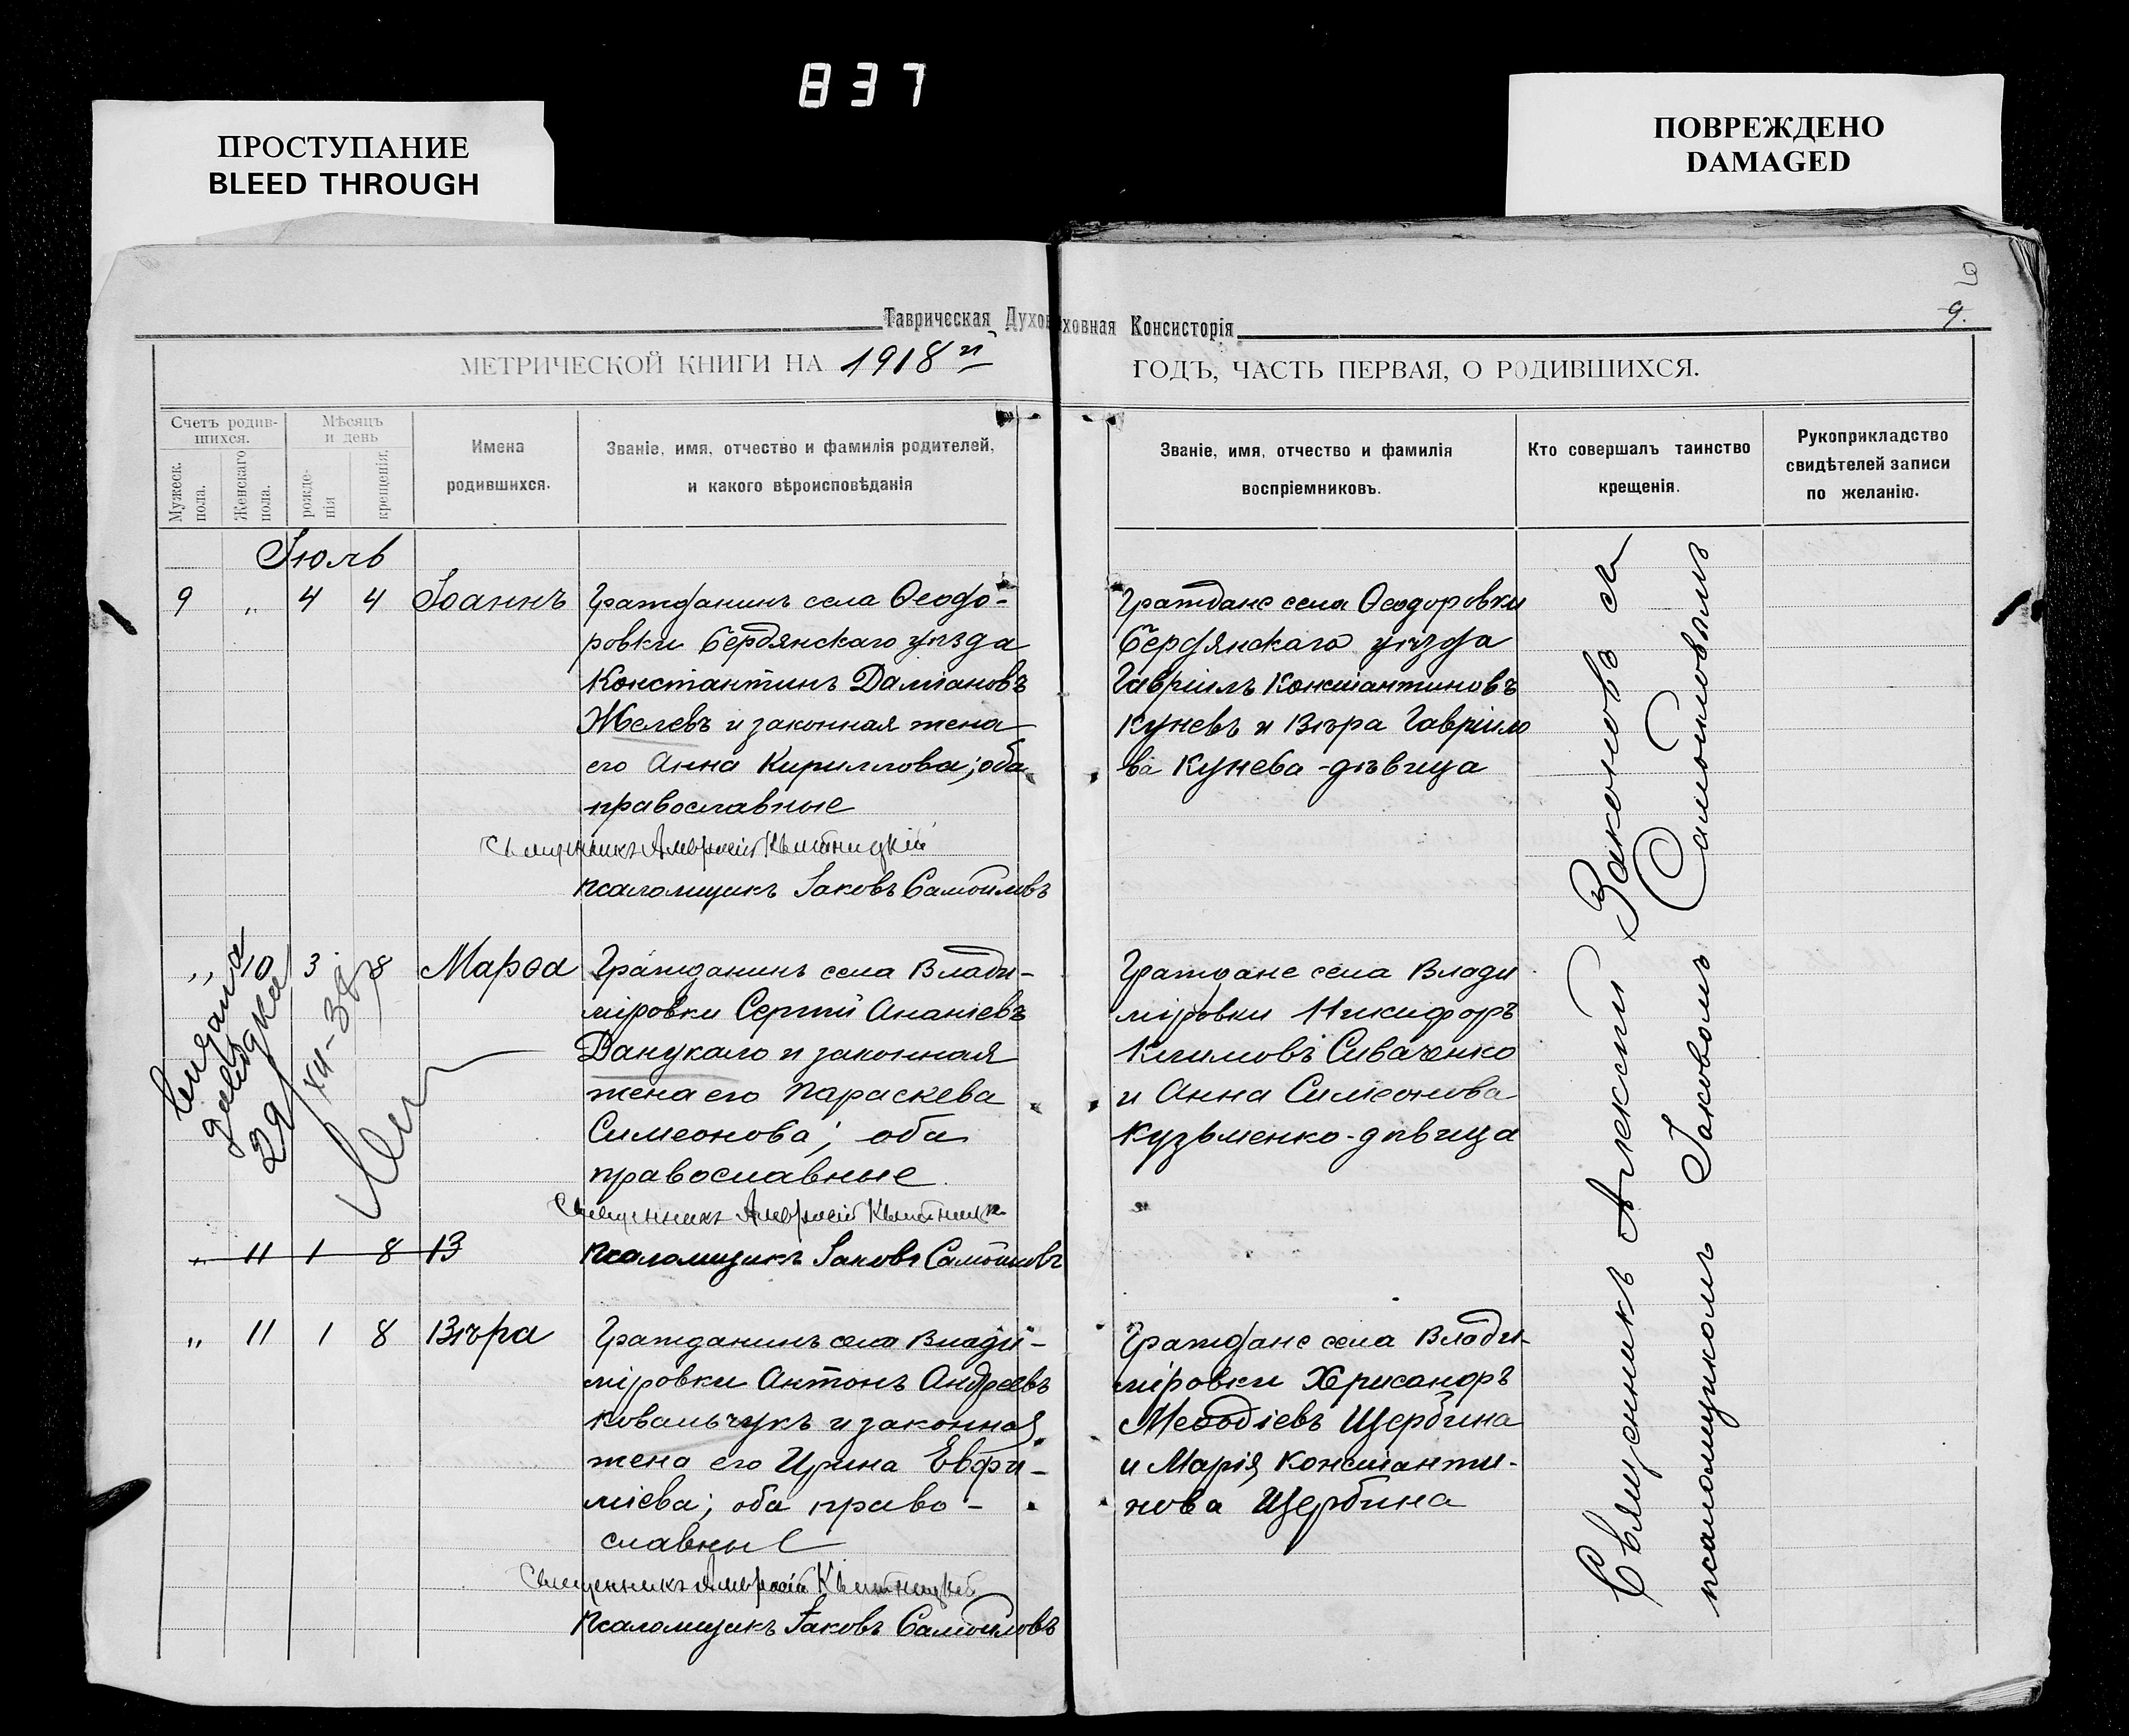 837
ПРОСТУПАНИЕ
BLEED THROUGH
ПОВРЕЖДЕНО
DAMAGED
9.
Таврическая Духовная Консисторія
МЕТРИЧЕСКОЙ КНИГИ НА 1918й ГОДЪ, ЧАСТЬ ПЕРВАЯ, О РОДИВШИХСЯ.
Счетъ родив-
шихся.
Мужеск.
пола.
Женскаго
пола.
Мѣсяцъ
и день
рожде-
нія
крещенія.
Имена
родившихся.
Званіе, имя, отчество и фамилія родителей,
и какого вѣроисповѣданія
Званіе, имя, отчество и фамилія
воспріемниковъ.
Кто совершалъ таинство
крещенія.
Рукоприкладство
свидѣтелей записи
по желанію.
Іюль
9 „ 4 4 Іоаннъ
Гражданинъ села Ѳеодо-
ровки Бердянскаго уѣзда
Константинъ Даміановъ
Желевъ и законная жена
его Анна Кириллова; оба
православные
Священникъ Амвросій Квитницкій
Псаломщикъ Іаковъ Самойловъ
Граждане села Ѳеодоровки
Бердянскаго уѣзда
Гавріилъ Константиновъ
Куневъ и Вѣра Гавріило
ва Кунева - дѣвица
„ 10 3 8 Марѳа
Гражданинъ села Влади-
міровки Сергій Ананіевъ
Данукало и законная
жена его Параскева
Симеонова; оба
православные
Священникъ Амвросій Квитницк
Псаломщикъ Іаковъ Самойловъ
Граждане села Влади
міровки Никифоръ
Климовъ Сиваченко
и Анна Симеонова
Кузьменко - дѣвица
29/XII-38
„ 11 1 8 13
„ 11 1 8 Вѣра
Гражданинъ села Влади-
міровки Антонъ Андреевъ
Ковальчукъ и законная
жена его Ирина Евфи-
міева; оба право-
славные
Священникъ Амвросій Квитницкій
Псаломщикъ Іаковъ Самойловъ
Граждане села Влади-
міровки Хрисанфъ
Меѳодіевъ Щербина
и Марія Константи-
нова Щербина
Священникъ Алексій Законовъ съ
псаломщикомъ Іаковомъ Самойловымъ